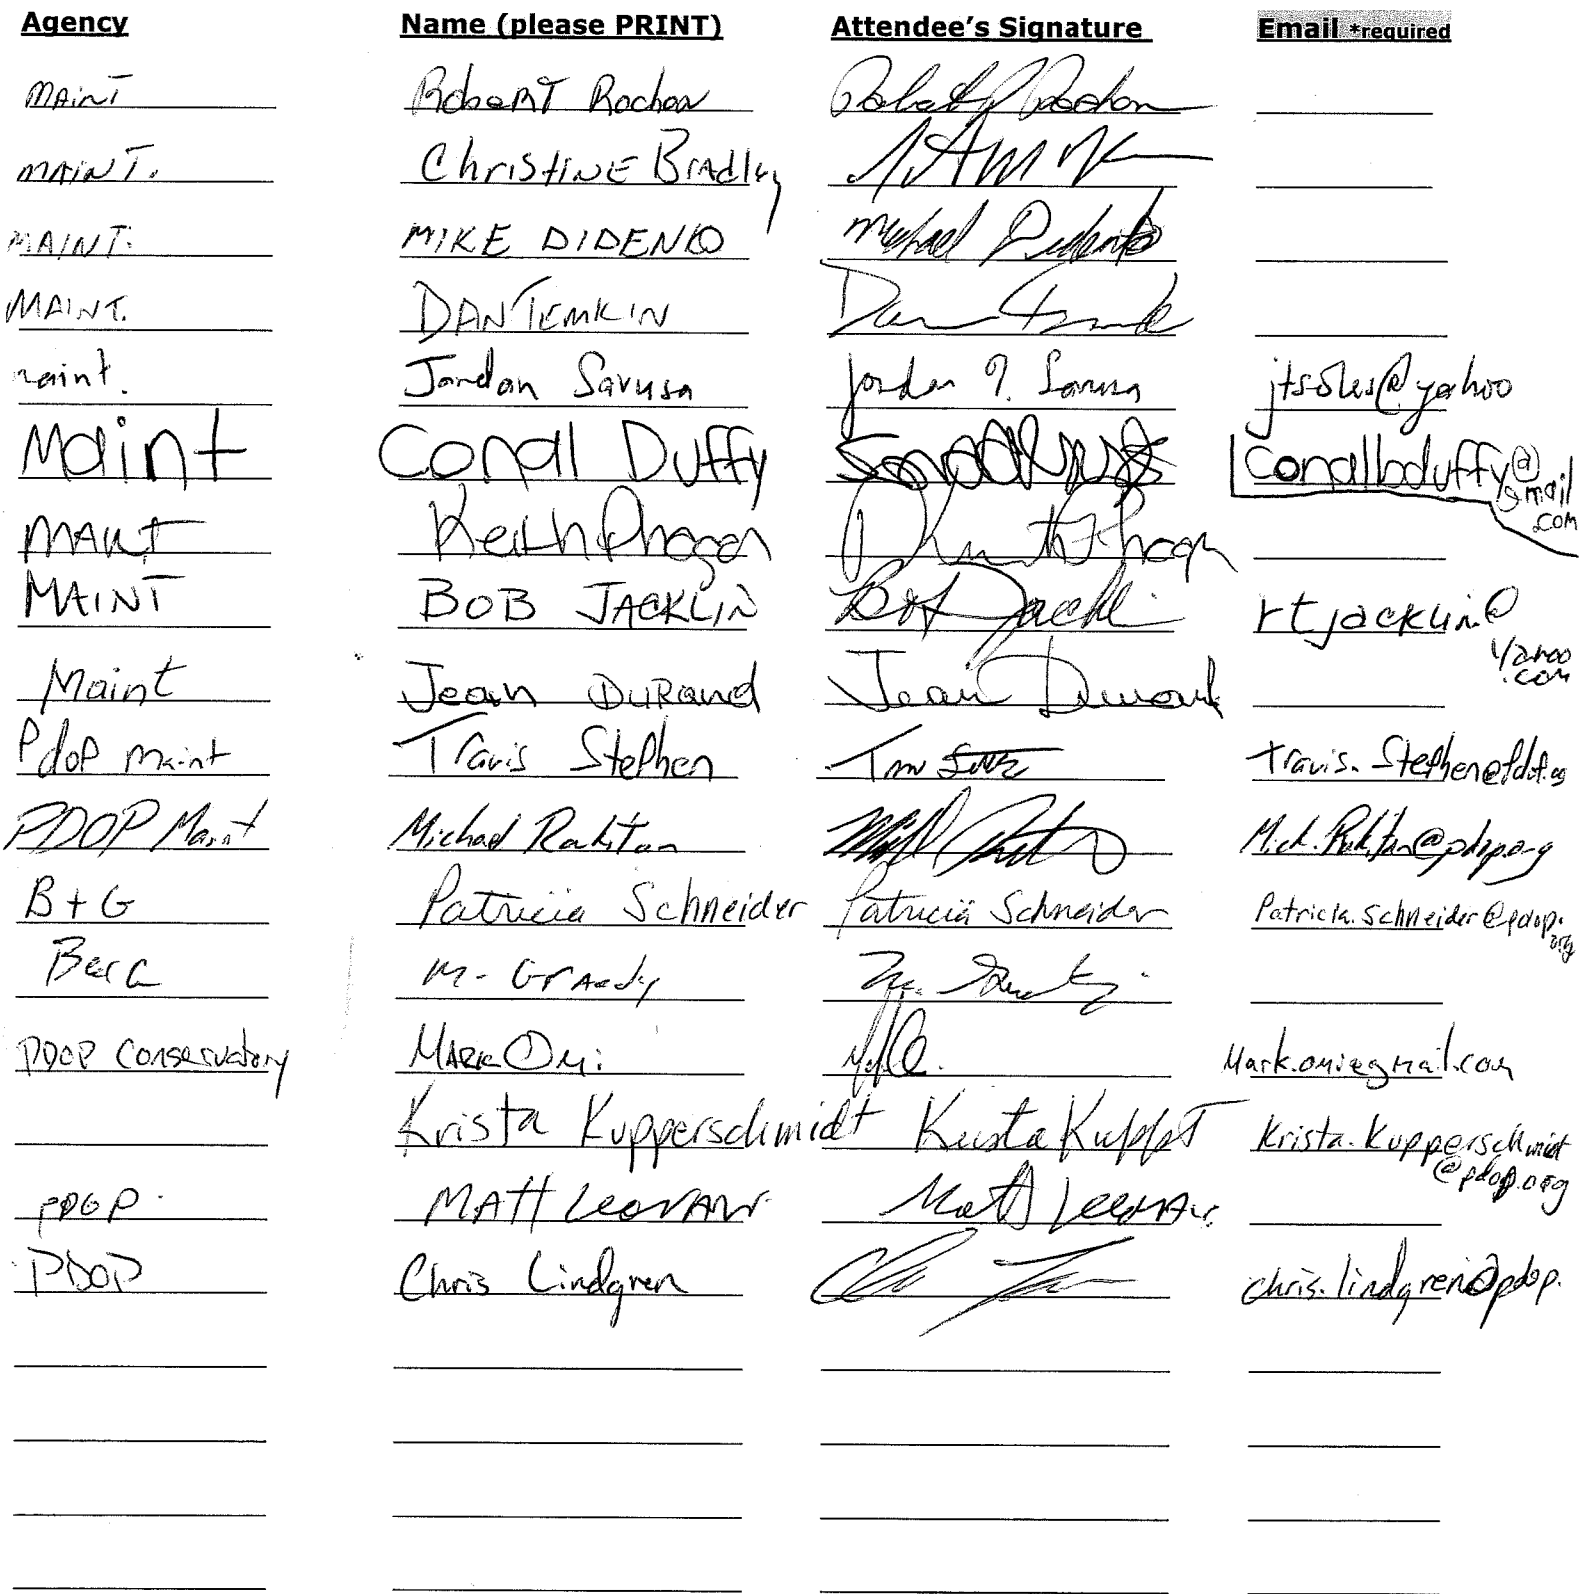 Agency Name (please PRINT) Attendee's Signature Email *required
MAINT Robert Rochon Robert J Rochon
MAINT. Christine Bradley
MAINT. MIKE DIDENKO Michael Didenko
MAINT. DAN TEMKIN
maint. Jordan Savusa Jordan T. Savusa jtsoles@yahoo
Maint Conall Duffy conallbduffy@
gmail
.com
MAINT Keith Phagan Keith Phagan
MAINT BOB JACKLIN Bob Jacklin rtjacklin@
yahoo
.com
Maint Jean DURand Jean Durand
Pdop maint Travis Stephen Travis.Stephen@pdop.org
PDOP Maint Michael Rakitan Mick.Rakitan@pdop.org
B+G Patricia Schneider Patricia Schneider Patricia.Schneider@pdop.
org
M. Graedy
PDOP Conservatory MARK Omi Mark.omi@gmail.com
Krista Kupperschmidt Krista Krista.Kupperschmidt
@pdop.org
PDOP. MATT Leonard Matt
PDOP Chris Lindgren chris.lindgren@pdop.